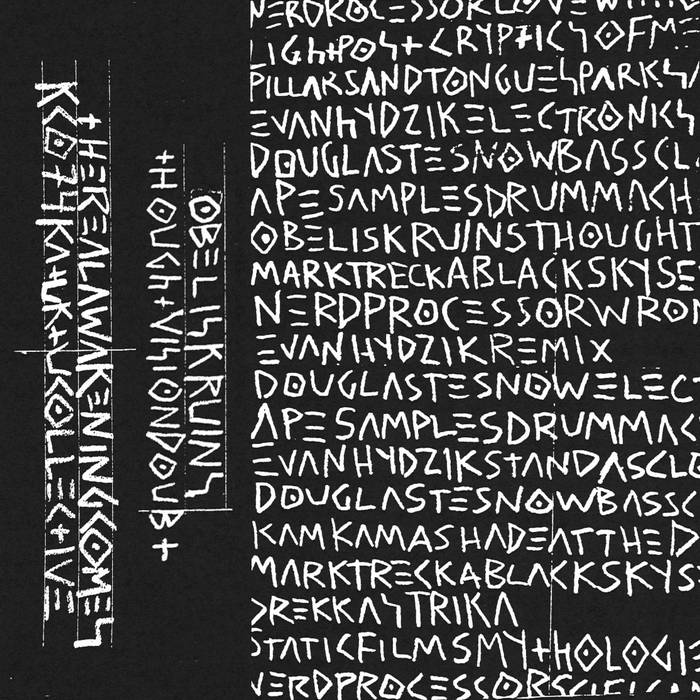 THEREALAWAKENINGCOMES
OBELISKRUINS
THOUGHTVISIONDOUBT
NERDPROCESSORLOVEWITH
LIGHTPOSTCRYPTICSOFME
PILLARSANDTONGUESPARKS
EVANHYDZIKELECTRONICS
DOUGLASTESNOWBASSCL
APESAMPLESDRUMMACH
OBELISKRUINSTHOUGHT
MARKTRECKABLACKSKYSE
NERDPROCESSORWRON
EVANHYDZIKREMIX
DOUGLASTESNOWELECT
APESAMPLESDRUMMAC
EVANHYDZIKSTANDASCLO
DOUGLASTESNOWBASSC
KAMKAMASHADEATTHED
MARKTRECKABLACKSKYS
DREKKASTRIKA
STATICFILMSMYTHOLOGIE
NERDPROCESSORSCIFI